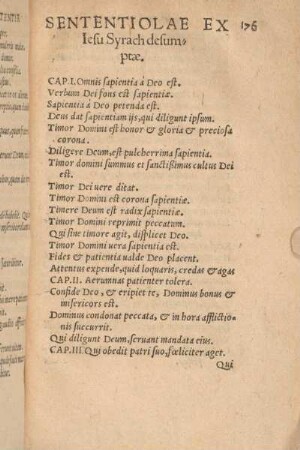 SENTENTIOLAE EX
176
Iesu Syrach desum-
ptæ.
CAP. I. Omnis sapientia à Deo est.
Verbum Dei fons est sapientiæ.
Sapientia à Deo petenda est.
Deus dat sapientiam ijs, qui diligunt ipsum.
Timor Domini est honor & gloria & preciosa
corona.
Diligere Deum, est pulcherrima sapientia.
Timor domini summus et sanctissimus cultus Dei
est.
Timor Dei uere ditat.
Timor Domini est corona sapientiæ.
Timere Deum est radix sapientiæ.
Timor Domini reprimit peccatum.
Qui sine timore agit, displicet Deo.
Timor Domini uera sapientia est.
Fides & patientia ualde Deo placent.
Attentus expende, quid loquaris, credas & agas
CAP. II. Aerumnas patienter tolera.
Confide Deo, & eripiet te, Dominus bonus &
misericors est.
Dominus condonat peccata, & in hora afflictio-
nis succurrit.
Qui diligunt Deum, seruant mandata eius.
CAP. III. Qui obedit patri suo, fœliciter aget.
Qui